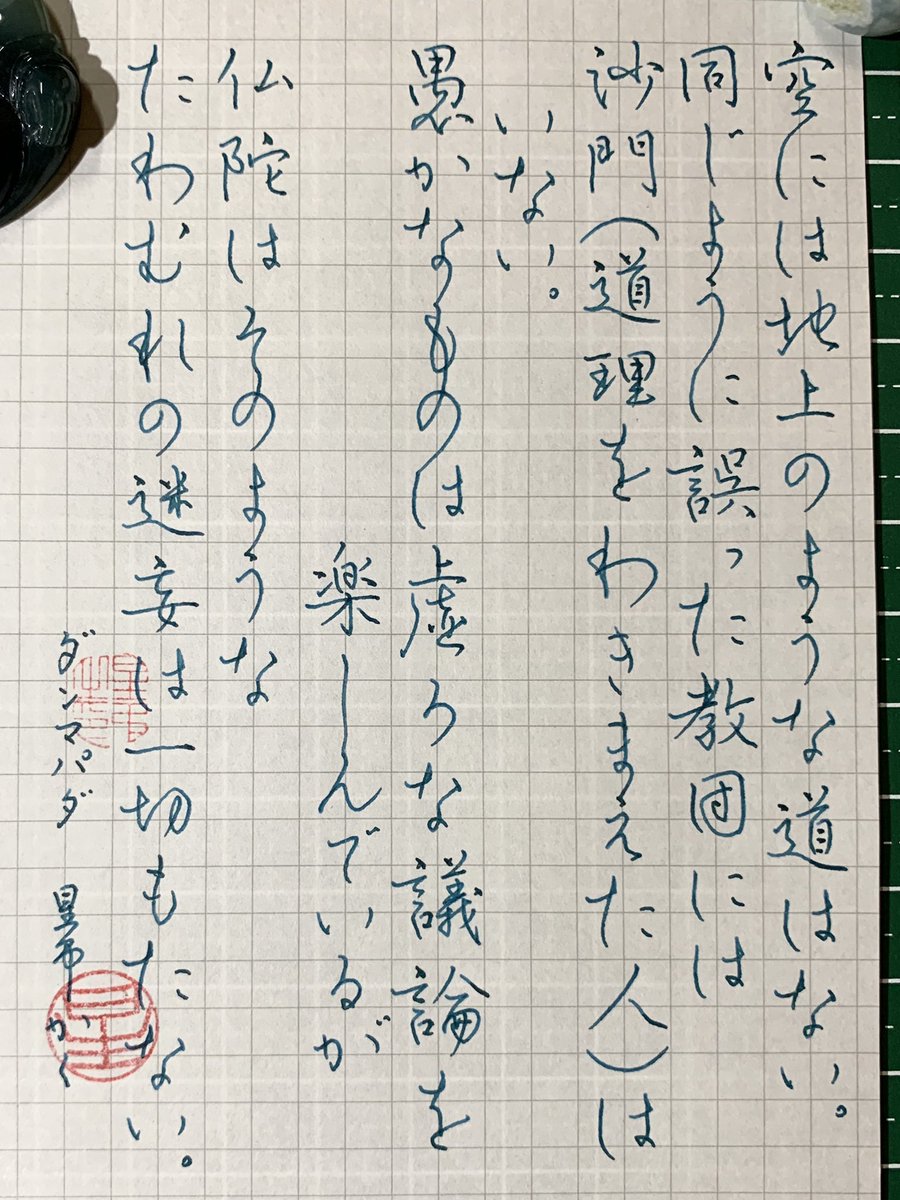 空には地上のような道はない。
同じように誤った教団には
沙門(道理をわきまえた人)は
いない。
愚かなものは虚ろな議論を
楽しんでいるが
仏陀はそのような
たわむれの迷妄は一切もたない。
ダンマパダ かく